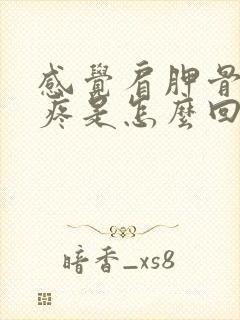 感覺肩胛骨
疼是怎麼回
暗香_xs8